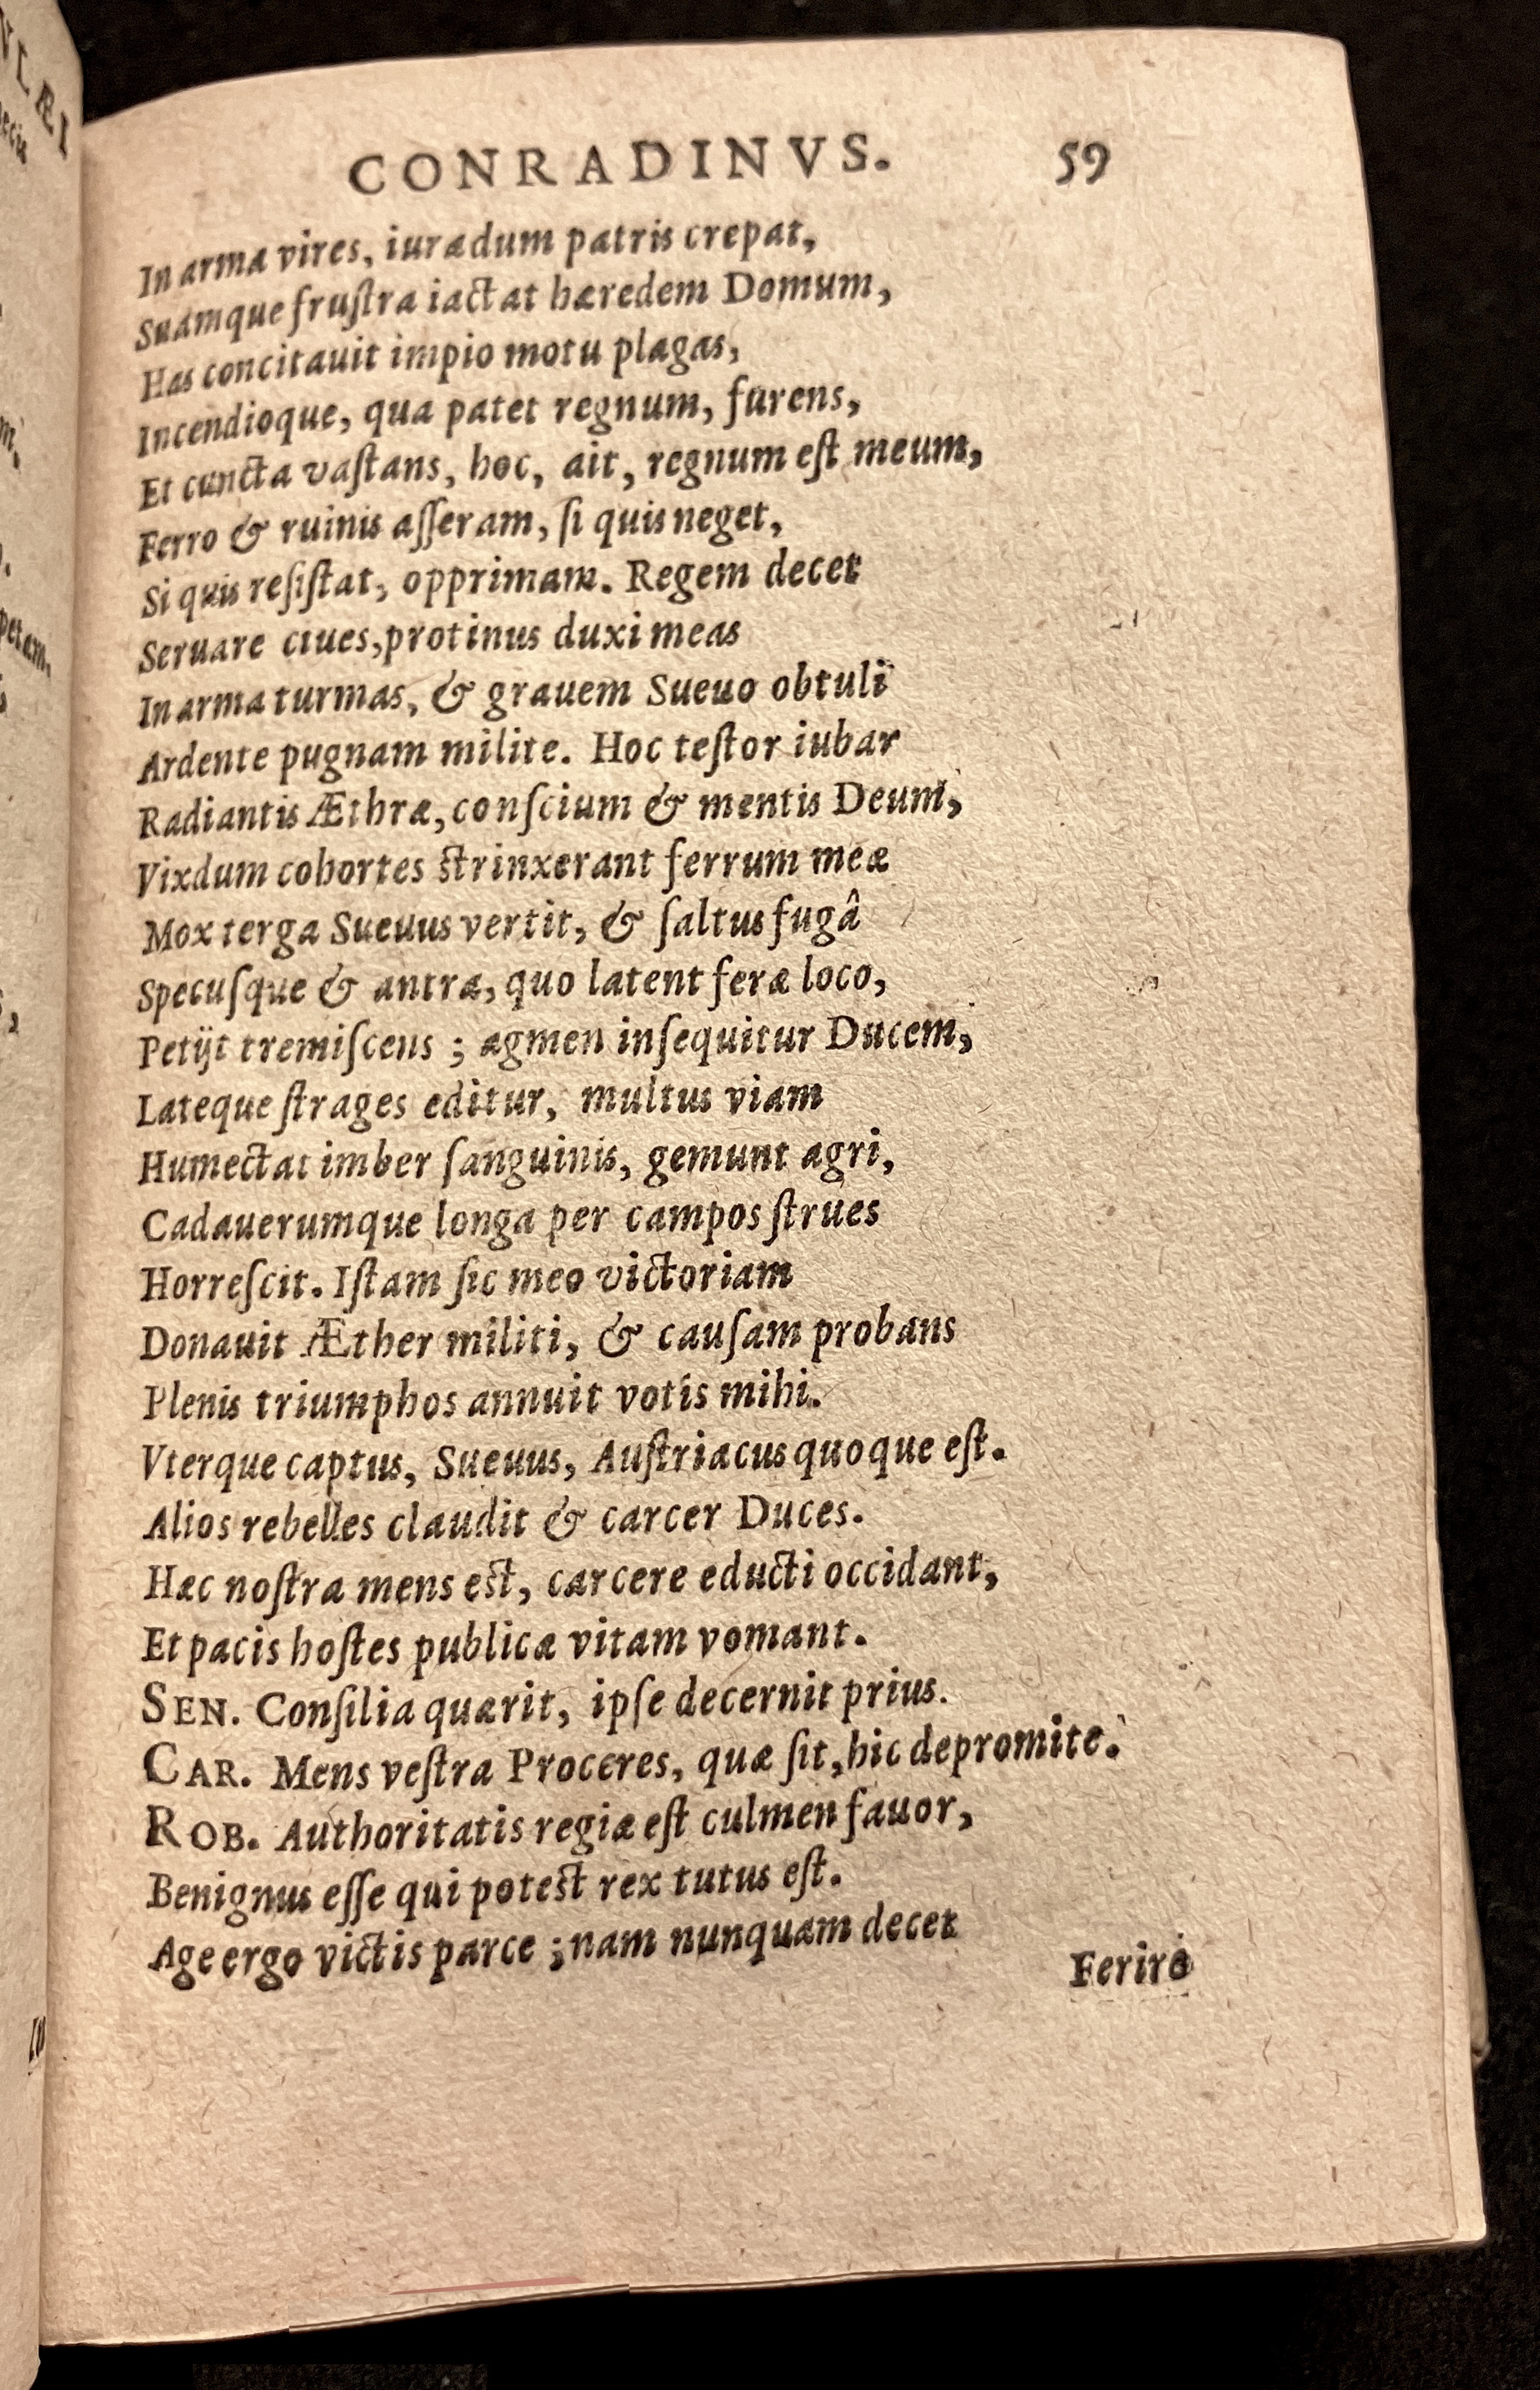 CONRADINVS. 59
In arma vires, iura dum patris crepat,
Suamque frustra iactat hæredem Domum,
Has concitauit impio motu plagas,
Incendioque, qua patet regnum, furens,
Et cuncta vastans, hoc, ait, regnum est meum,
Ferro & ruinis asseram, si quis neget,
Si quis resistat, opprimam. Regem decet
Seruare ciues, protinus duxi meas
In arma turmas, & grauem Sueuo obtuli
Ardente pugnam milite. Hoc testor iubar
Radiantis Æthræ, conscium & mentis Deum,
Vixdum cohortes strinxerant ferrum meæ
Mox terga Sueuus vertit, & saltus fugâ
Specusque & antra, quo latent feræ loco,
Petijt tremiscens ; agmen insequitur Ducem,
Lateque strages editur, multus viam
Humectat imber sanguinis, gemunt agri,
Cadauerumque longa per campos strues
Horrescit. Istam sic meo victoriam
Donauit Æther militi, & causam probans
Plenis triumphos annuit votis mihi.
Vterque captus, Sueuus, Austriacus quoque est.
Alios rebelles claudit & carcer Duces.
Hæc nostra mens est, carcere educti occidant,
Et pacis hostes publicæ vitam vomant.
SEN. Consilia quærit, ipse decernit prius.
CAR. Mens vestra Proceres, quæ sit, hic depromite.
ROB. Authoritatis regiæ est culmen fauor,
Benignus esse qui potest rex tutus est.
Age ergo victis parce ; nam nunquam decet
Ferire